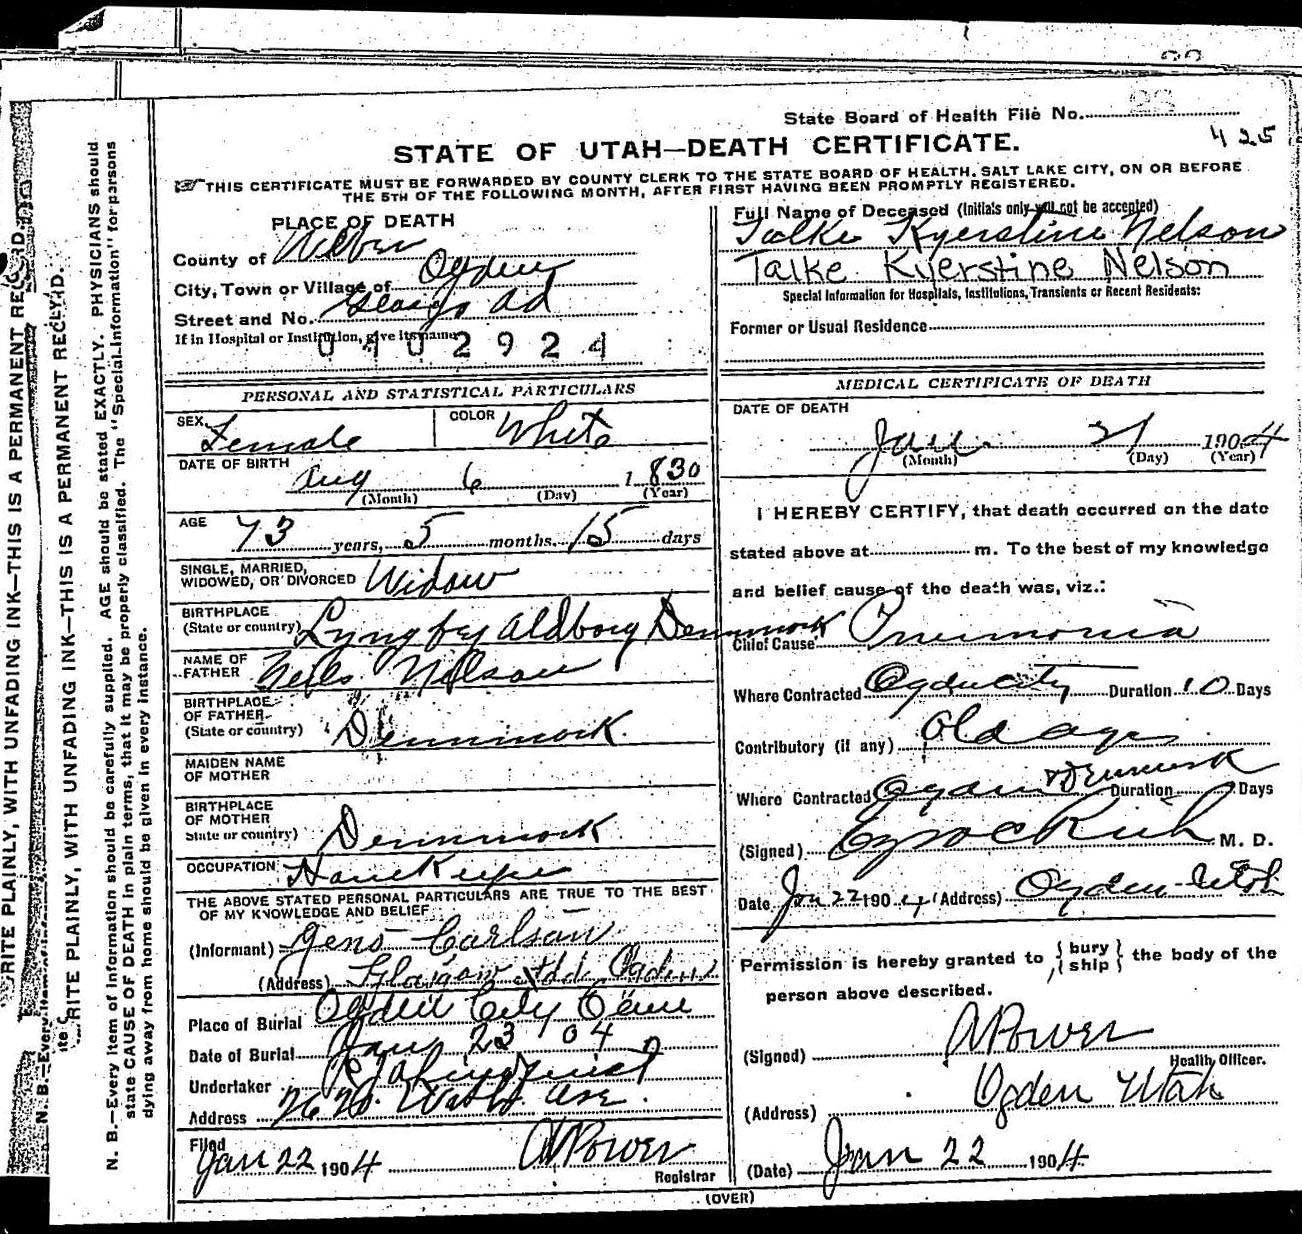 State Board of Health File No. 23
425
STATE OF UTAH—DEATH CERTIFICATE.
THIS CERTIFICATE MUST BE FORWARDED BY COUNTY CLERK TO THE STATE BOARD OF HEALTH, SALT LAKE CITY, ON OR BEFORE
THE 5TH OF THE FOLLOWING MONTH, AFTER FIRST HAVING BEEN PROMPTLY REGISTERED.
PLACE OF DEATH
County of Weber
City, Town or Village of Ogden
Street and No. Ad
If in Hospital or Institution, give its name
0402924
PERSONAL AND STATISTICAL PARTICULARS
SEX Female COLOR White
DATE OF BIRTH
Aug 6 1830
(Month) (Day) (Year)
AGE 73 years, 5 months. 15 days
SINGLE, MARRIED,
WIDOWED, OR DIVORCED Widow
BIRTHPLACE
(State or country) Lyngby Aldborg Denmark
NAME OF
FATHER Neils Nelson
BIRTHPLACE
OF FATHER
(State or country) Denmark.
MAIDEN NAME
OF MOTHER
BIRTHPLACE
OF MOTHER
State or country) Denmark
OCCUPATION House Keeper
THE ABOVE STATED PERSONAL PARTICULARS ARE TRUE TO THE BEST
OF MY KNOWLEDGE AND BELIEF
(Informant) Jens Carlson
(Address) Glasgow Add Ogden
Place of Burial Ogden City Cem
Date of Burial Jan 23 04
Undertaker
Address Wash. Ave.
Filed
Jan 22 1904 A Power
Registrar
Full Name of Deceased (Initials only will not be accepted)
Talke Kyerstine Nelson
Talke Kyerstine Nelson
Special Information for Hospitals, Institutions, Transients or Recent Residents:
Former or Usual Residence
MEDICAL CERTIFICATE OF DEATH
DATE OF DEATH
Jan. 21 1904
(Month) (Day) (Year)
I HEREBY CERTIFY, that death occurred on the date
stated above at m. To the best of my knowledge
and belief cause of the death was, viz.:
Chief Cause Pneumonia
Where Contracted Ogden City Duration 10 Days
Contributory (if any) Old age
Where Contracted Ogden & Denmark Duration ? Days
(Signed) Ezra C Rich M. D.
Date Jan 22 1904 (Address) Ogden Utah
Permission is hereby granted to {bury
ship} the body of the
person above described.
(Signed) A Power
Health Officer.
(Address) Ogden Utah
(Date) Jan 22 1904.
(OVER)
RITE PLAINLY, WITH UNFADING INK—THIS IS A PERMANENT RECORD.
N. B.—Every item
RITE PLAINLY, WITH UNFADING INK—THIS IS A PERMANENT RECORD.
N. B.—Every item of information should be carefully supplied. AGE should be stated EXACTLY. PHYSICIANS should
state CAUSE OF DEATH in plain terms, that it may be properly classified. The "Special Information" for parsons
dying away from home should be given in every instance.